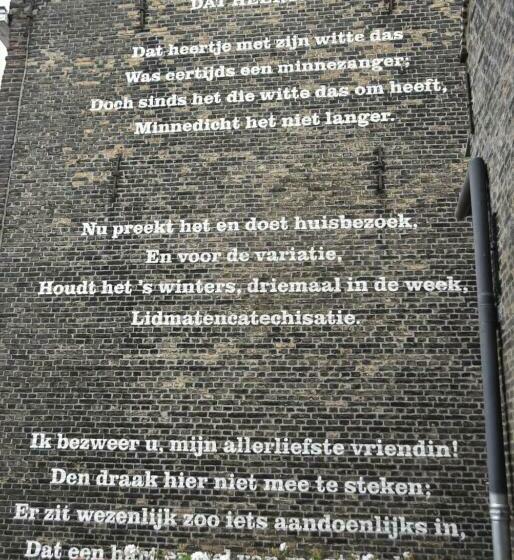 DAT HEER
Dat heertje met zijn witte das
Was eertijds een minnezanger;
Doch sinds het die witte das om heeft,
Minnedicht het niet langer.
Nu preekt het en doet huisbezoek,
En voor de variatie,
Houdt het 's winters, driemaal in de week,
Lidmatencatechisatie.
Ik bezweer u, mijn allerliefste vriendin!
Den draak hier niet mee te steken;
Er zit wezenlijk zoo iets aandoenlijks in,
Dat een